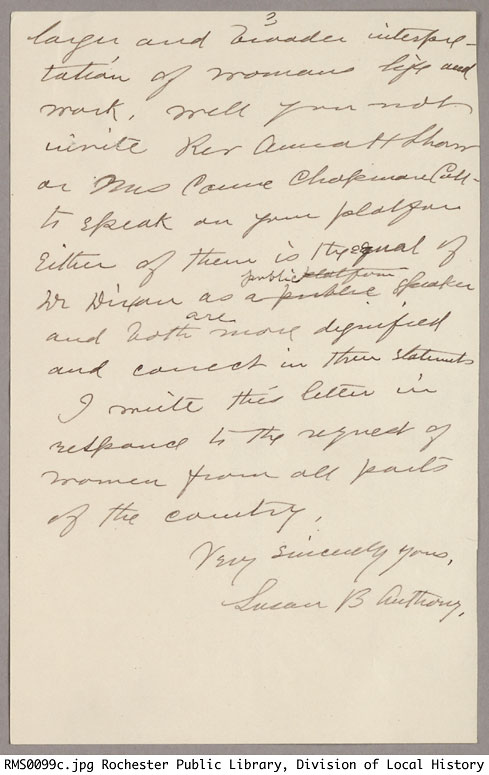 3
larger and broader interpre-
tation of womans life and
work, will you not
invite Rev Anna H Shaw
or Mrs Carrie Chapman Catt-
to speak on your platform
Either of them is the equal of
Dr Dixon as a public platform public speaker
and both are more dignified
and correct in their statements
I write this letter in
response to the request of
women from all parts
of the country.
Very sincerely yours,
Susan B Anthony,
RMS0099c.jpg Rochester Public Library, Division of Local History